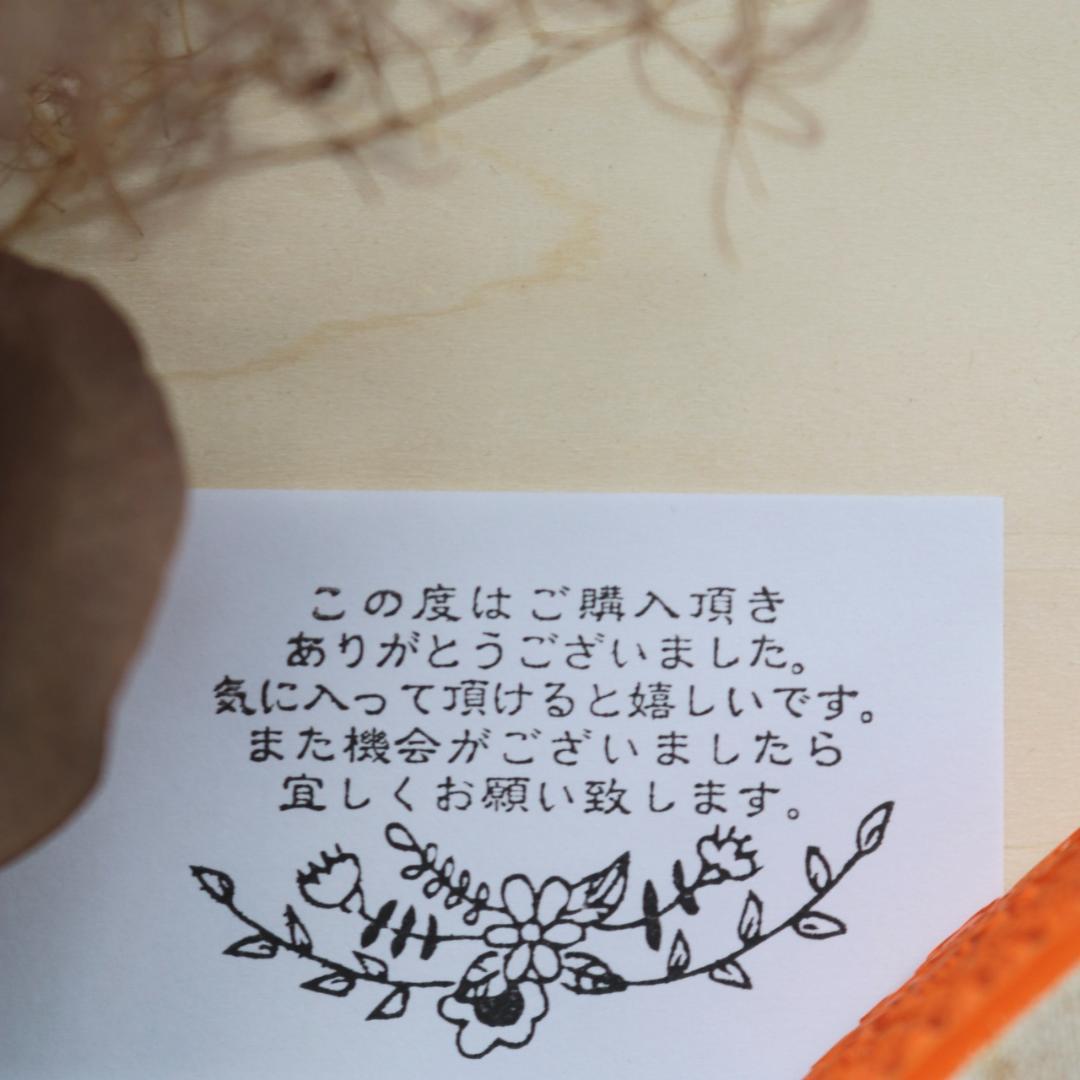 この度はご購入頂き
ありがとうございました。
気に入って頂けると嬉しいです。
また機会がございましたら
宜しくお願い致します。